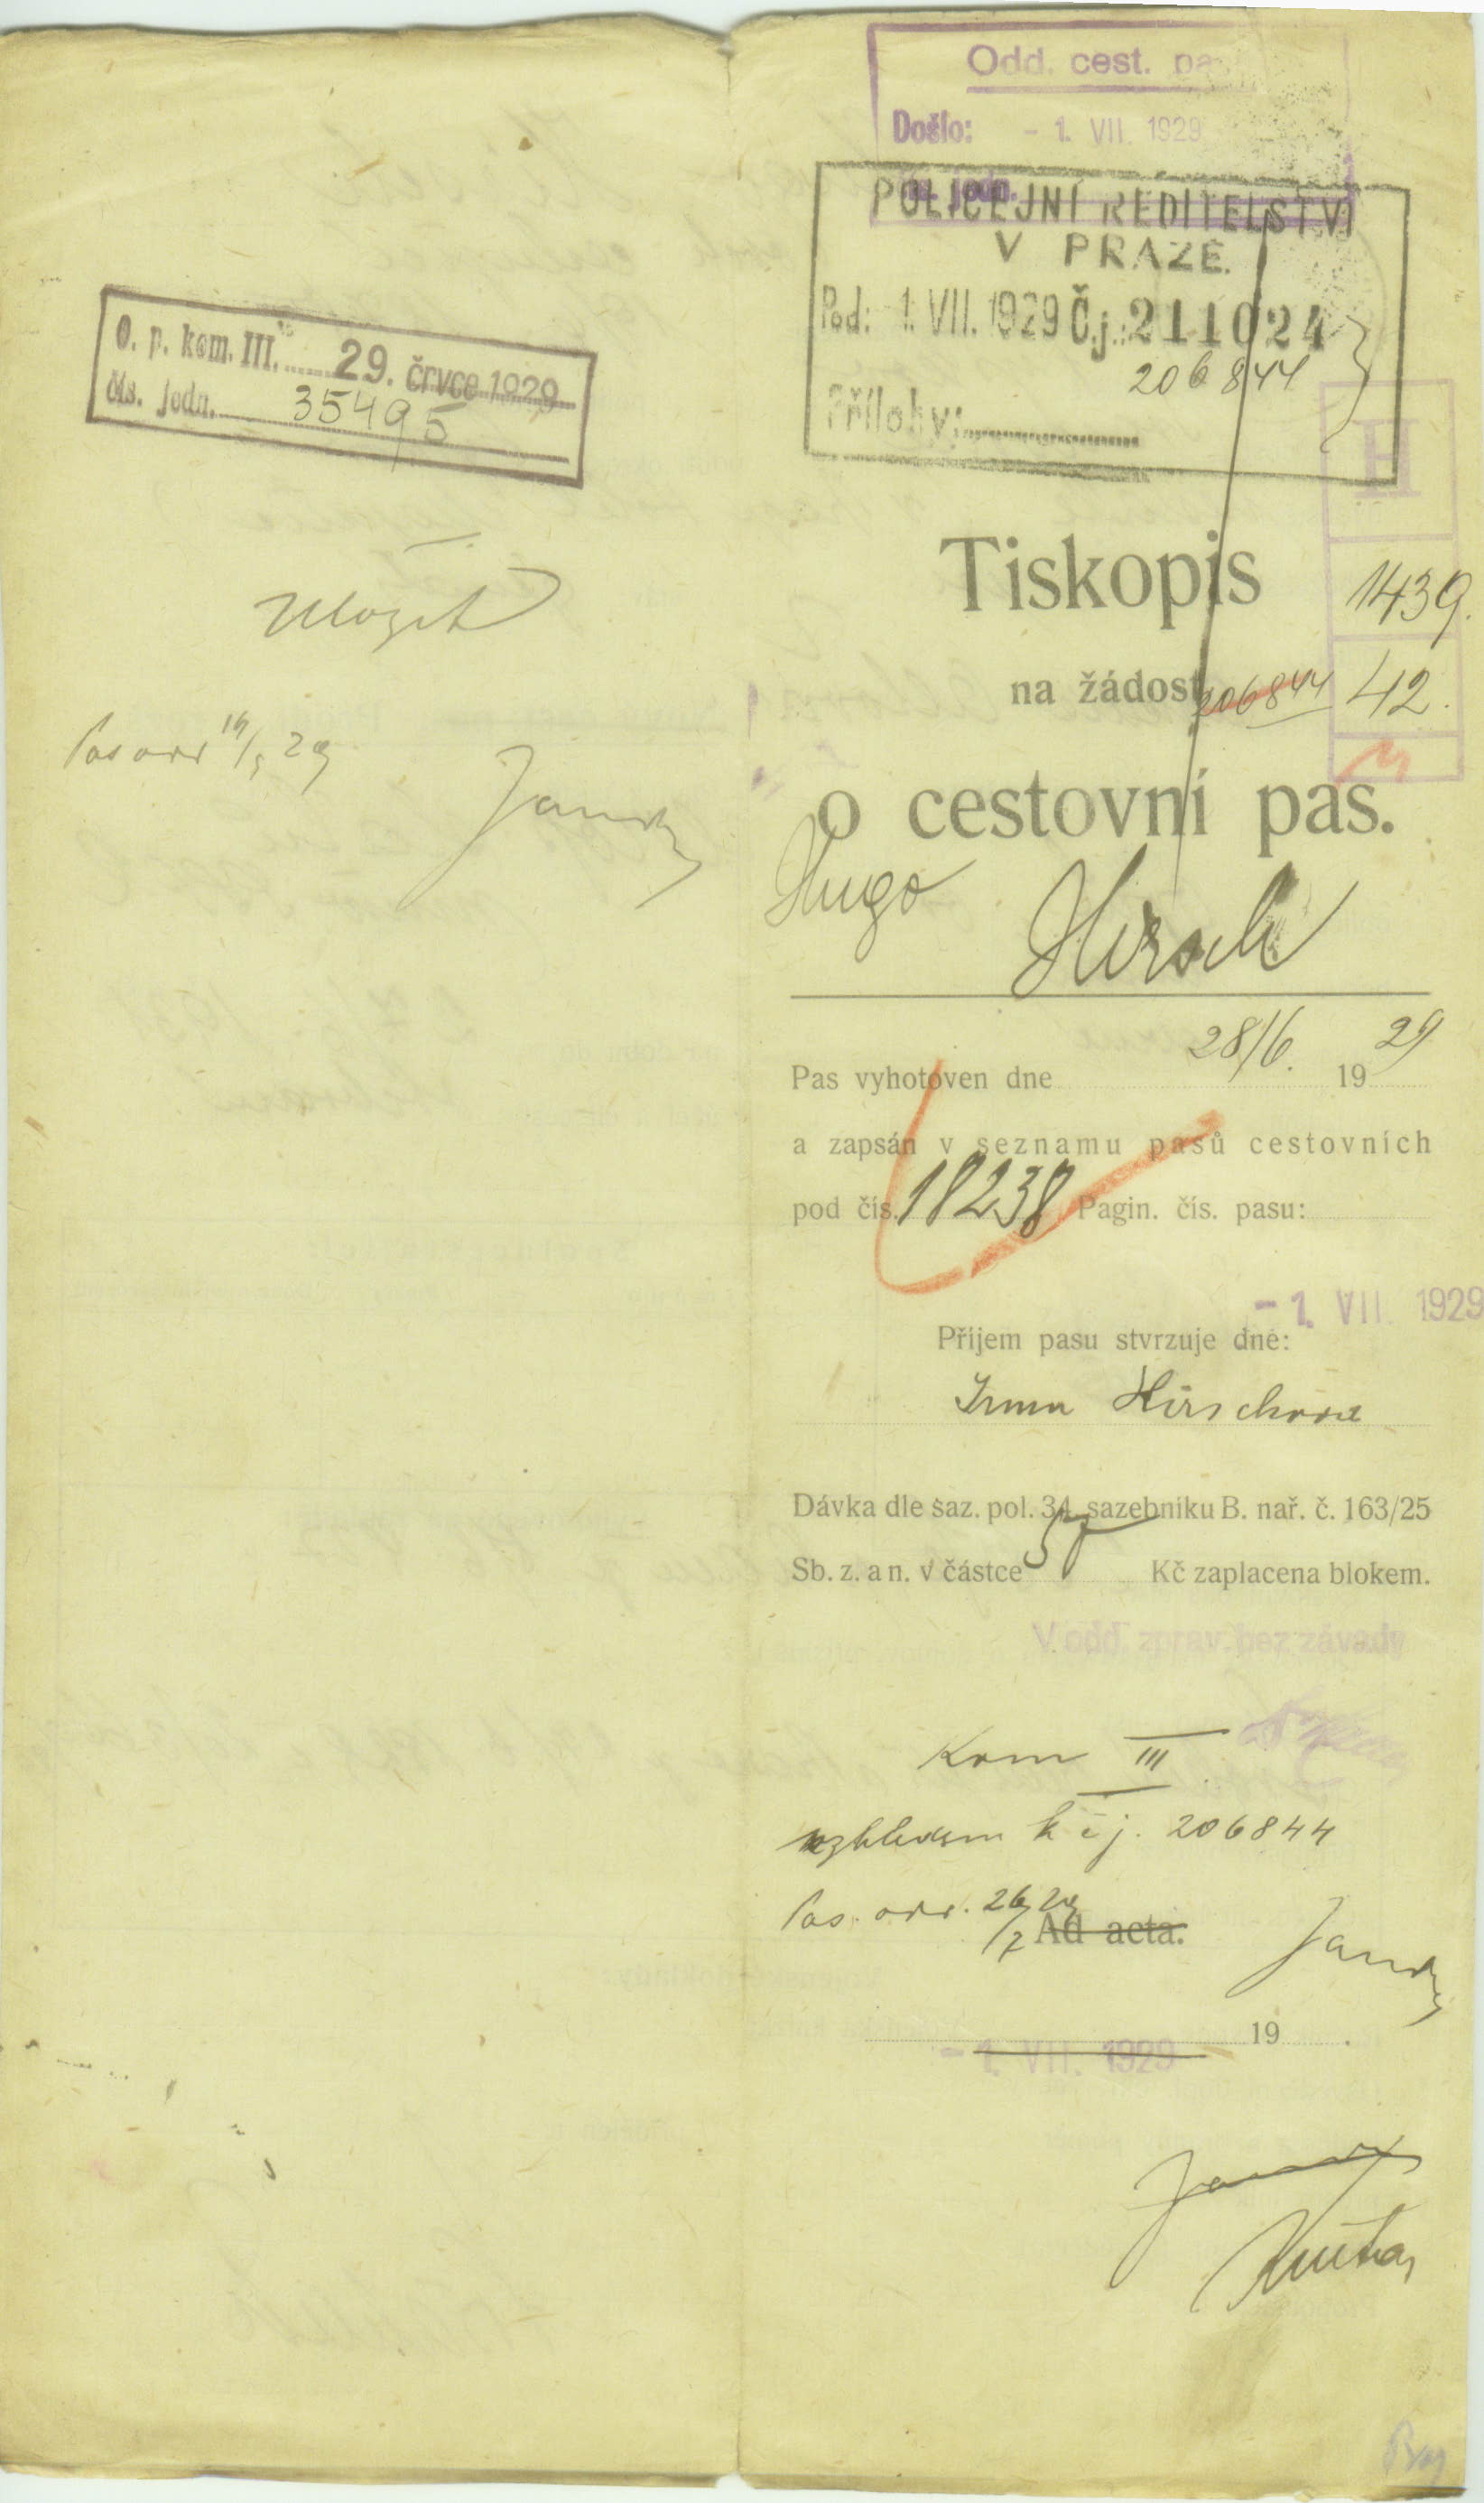 O. p. kom. III. 29. črvce 1929
čís. jedn. 35495
Uložit
Pas. odd. 29
Janda
Odd. cest. pa
Došlo: - 1. VII. 1929
jedn.
POLICEJNÍ ŘEDITELSTVÍ
V PRAZE.
Pod: 1. VII. 1929 Č.j.: 211024
206844
Přílohy:
H
1439.
42.
Tiskopis
na žádost 206844
o cestovní pas.
Hugo
Hirsch
Pas vyhotoven dne 28/6. 1929
a zapsán v seznamu pasů cestovních
pod čís. 18238 Pagin. čís. pasu:
- 1. VII. 1929
Příjem pasu stvrzuje dne:
Irma Hirschova
Dávka dle saz. pol. 34 sazebníku B. nař. č. 163/25
Sb. z. a n. v částce Kč zaplacena blokem.
V odd. zprav. bez závady
Kom III
vzhledem k čj. 206844
Pas. odd. 26/7 29
Ad acta.
19 .
- 1. VII. 1929